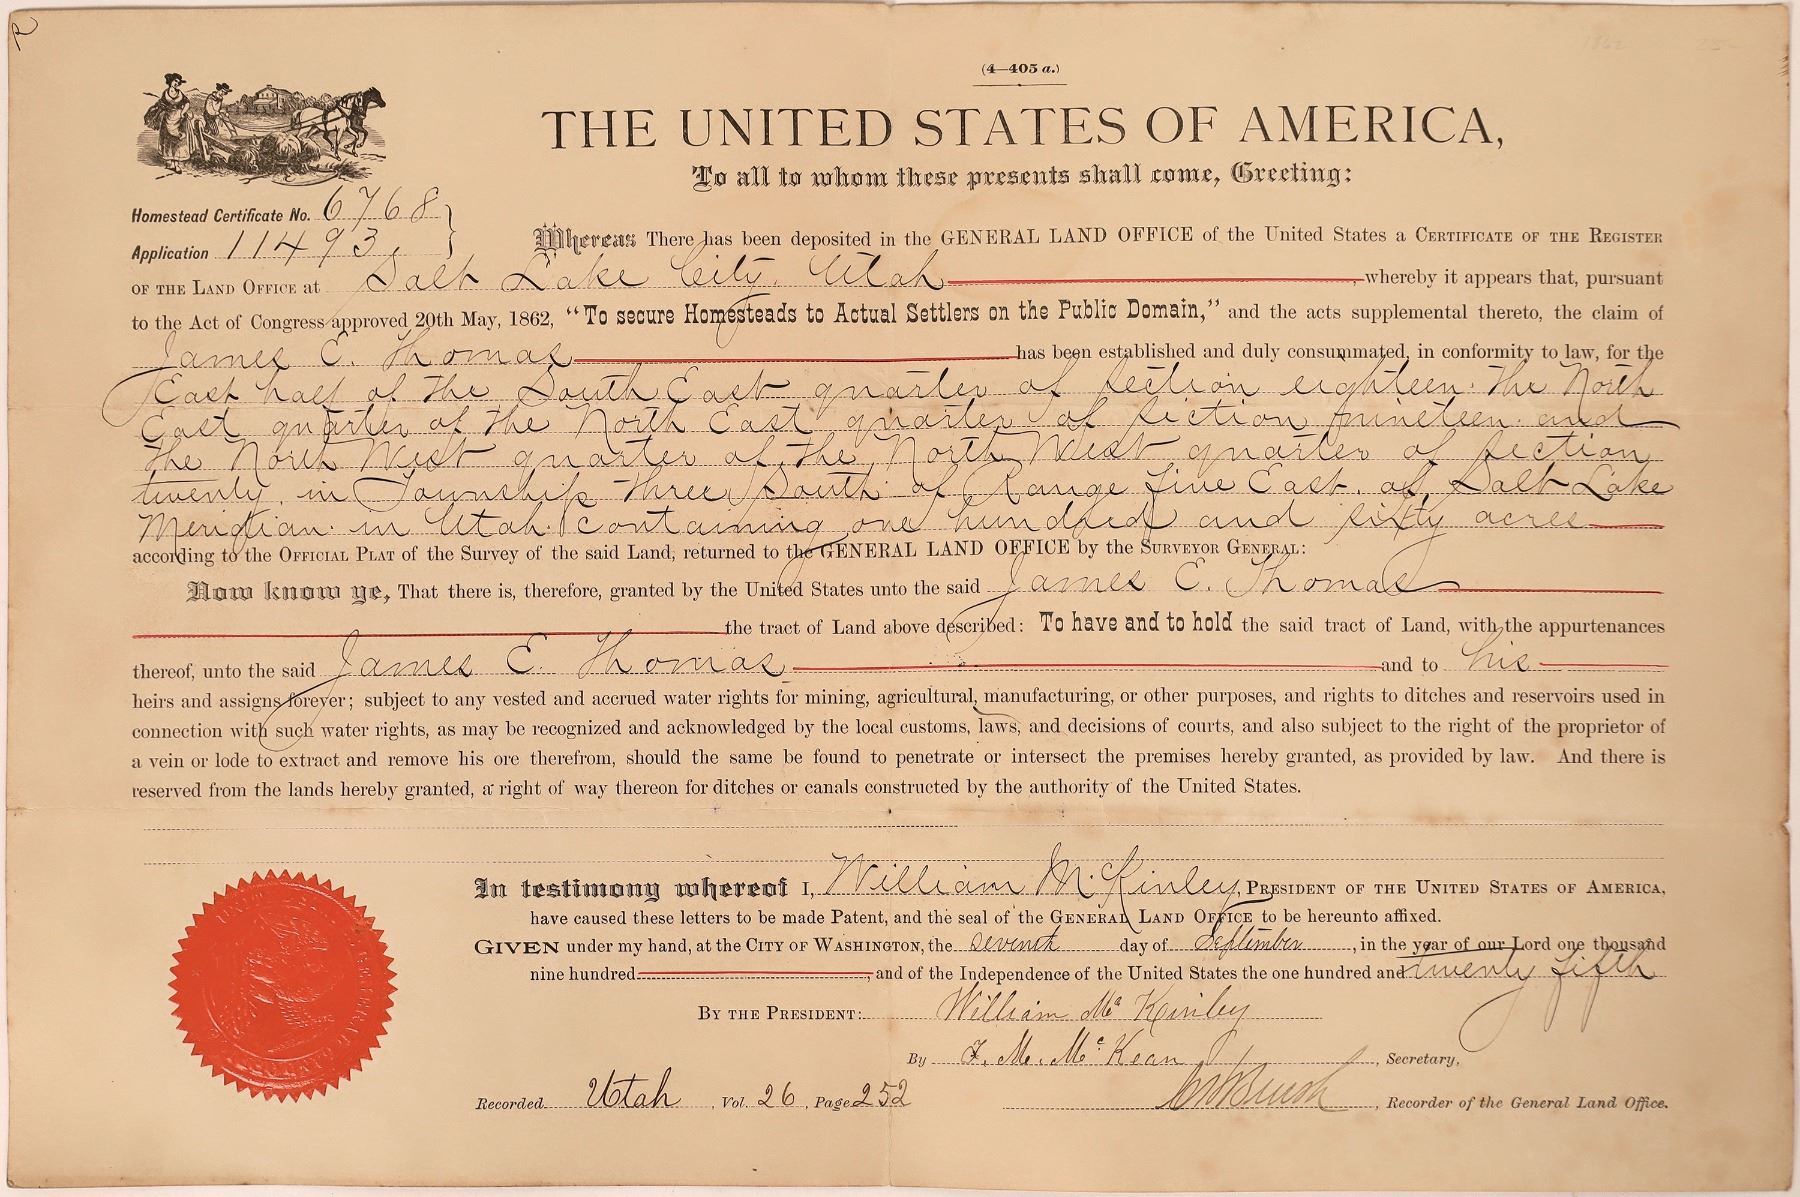 (4—405 a.)
THE UNITED STATES OF AMERICA,
To all to whom these presents shall come, Greeting:
Homestead Certificate No. 6768
Application 11493.
Whereas There has been deposited in the GENERAL LAND OFFICE of the United States a CERTIFICATE OF THE REGISTER
OF THE LAND OFFICE at Salt Lake City, Utah, whereby it appears that, pursuant
to the Act of Congress approved 20th May, 1862, "To secure Homesteads to Actual Settlers on the Public Domain," and the acts supplemental thereto, the claim of
James E. Thomas has been established and duly consummated, in conformity to law, for the
East half of the South East quarter of section eighteen. the North
East quarter of the North East quarter of section nineteen. and
the North West quarter of the North West quarter of section
twenty, in Township three South of Range five East. of Salt Lake
Meridian. in Utah. containing one hundred and sixty acres
according to the OFFICIAL PLAT of the Survey of the said Land, returned to the GENERAL LAND OFFICE by the SURVEYOR GENERAL:
Now know ye, That there is, therefore, granted by the United States unto the said James E. Thomas
the tract of Land above described: To have and to hold the said tract of Land, with the appurtenances
thereof, unto the said James E. Thomas and to his
heirs and assigns forever; subject to any vested and accrued water rights for mining, agricultural, manufacturing, or other purposes, and rights to ditches and reservoirs used in
connection with such water rights, as may be recognized and acknowledged by the local customs, laws, and decisions of courts, and also subject to the right of the proprietor of
a vein or lode to extract and remove his ore therefrom, should the same be found to penetrate or intersect the premises hereby granted, as provided by law. And there is
reserved from the lands hereby granted, a right of way thereon for ditches or canals constructed by the authority of the United States.
In testimony whereof I, William McKinley, PRESIDENT OF THE UNITED STATES OF AMERICA,
have caused these letters to be made Patent, and the seal of the GENERAL LAND OFFICE to be hereunto affixed.
GIVEN under my hand, at the CITY OF WASHINGTON, the seventh day of September, in the year of our Lord one thousand
nine hundred, and of the Independence of the United States the one hundred and twenty fifth
BY THE PRESIDENT: William McKinley
By F. M. McKean, Secretary,
Recorded Utah, Vol. 26, Page 252
, Recorder of the General Land Office.